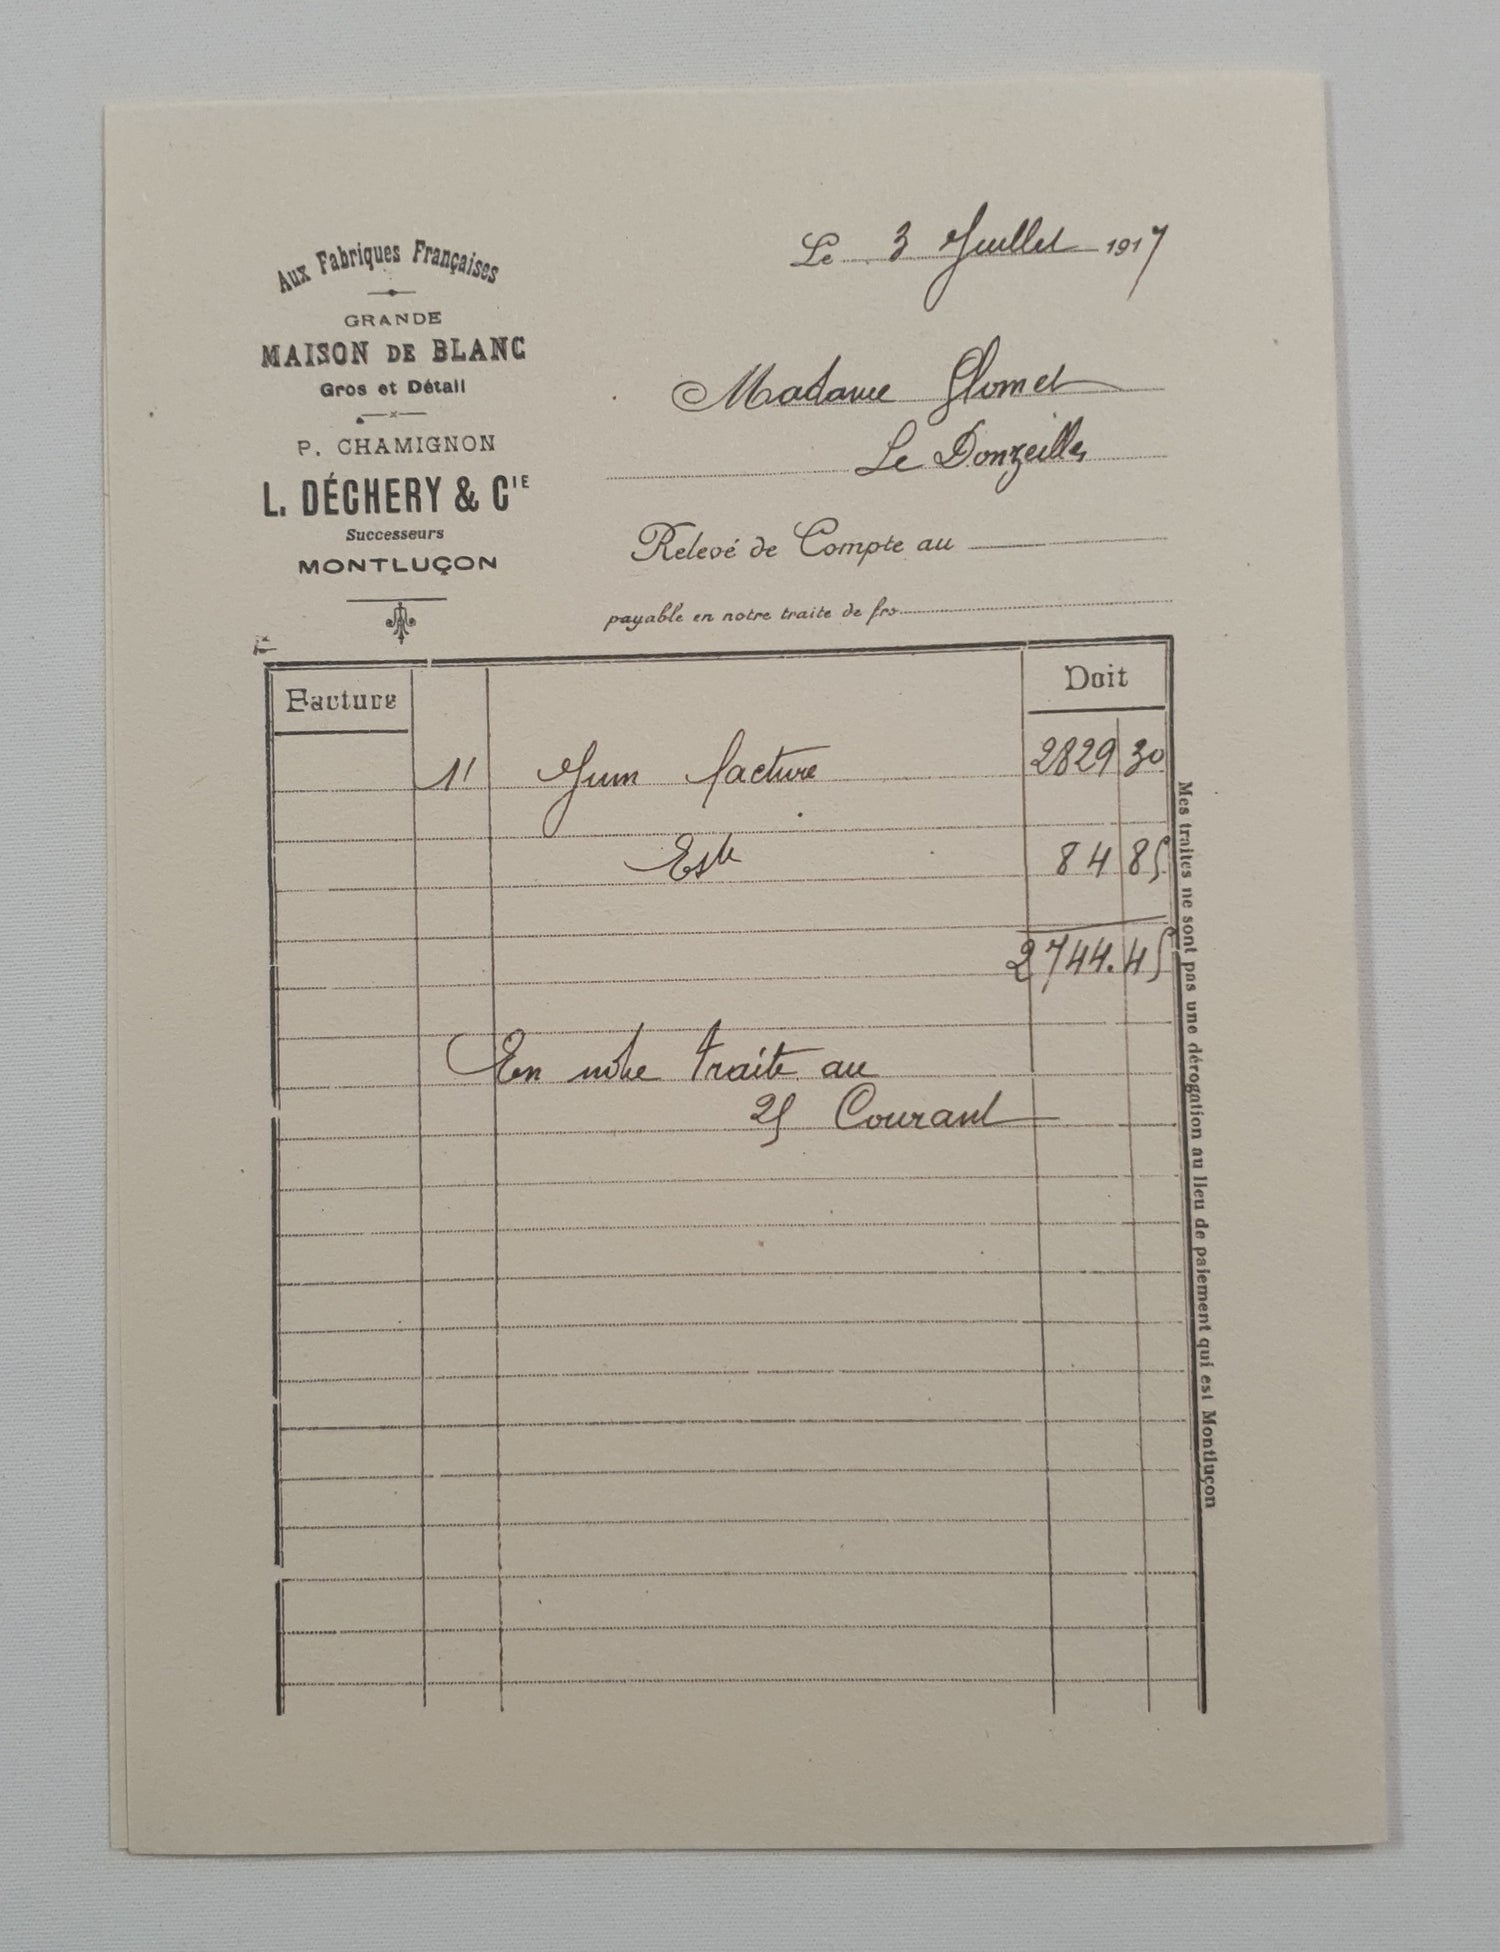 Aux Fabriques Françaises
GRANDE
MAISON DE BLANC
Gros et Détail
P. CHAMIGNON
L. DÉCHERY & CIE
Successeurs
MONTLUÇON
Le 3 Juillet 1917
Madame Glomet
Le Donzeilles
Relevé de Compte au
payable en notre traite de frs
Facture
Doit
11 Juin facture 2829 30
Este 84 85
2744.45
En notre traite au
25 Courant
Mes traites ne sont pas une dérogation au lieu de paiement qui est Montluçon